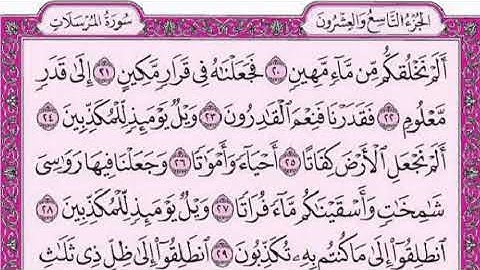 الجزء التاسع والعشرون سورة المرسلات
أَلَمْ نَخْلُقكُّم مِّن مَّآءٍ مَّهِينٍ ٢٠ فَجَعَلْنَٰهُ فِى قَرَارٍ مَّكِينٍ ٢١ إِلَىٰ قَدَرٍ
مَّعْلُومٍ ٢٢ فَقَدَرْنَا فَنِعْمَ ٱلْقَٰدِرُونَ ٢٣ وَيْلٌ يَوْمَئِذٍ لِّلْمُكَذِّبِينَ ٢٤
أَلَمْ نَجْعَلِ ٱلْأَرْضَ كِفَاتًا ٢٥ أَحْيَآءً وَأَمْوَٰتًا ٢٦ وَجَعَلْنَا فِيهَا رَوَٰسِىَ
شَٰمِخَٰتٍ وَأَسْقَيْنَٰكُم مَّآءً فُرَاتًا ٢٧ وَيْلٌ يَوْمَئِذٍ لِّلْمُكَذِّبِينَ ٢٨
ٱنطَلِقُوٓا۟ إِلَىٰ مَا كُنتُم بِهِۦ تُكَذِّبُونَ ٢٩ ٱنطَلِقُوٓا۟ إِلَىٰ ظِلٍّ ذِى ثَلَٰثِ